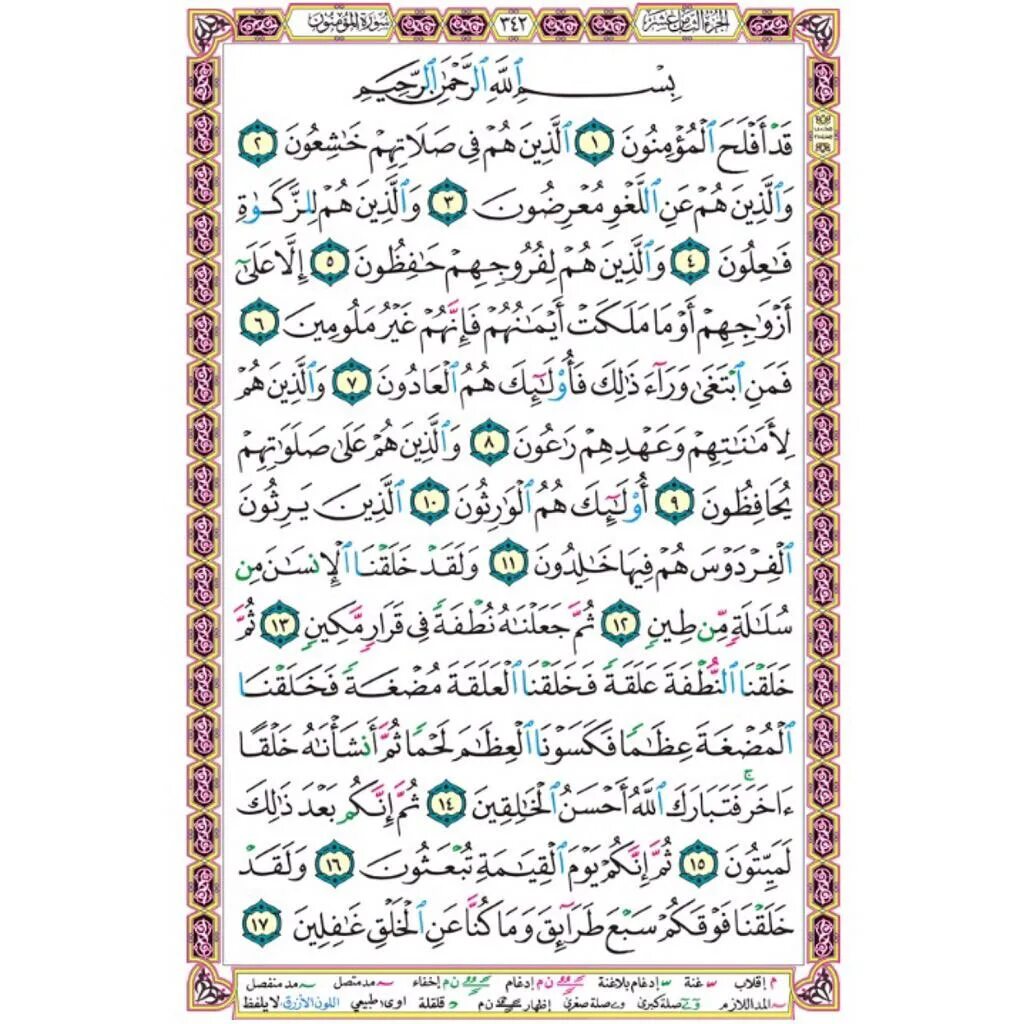 سورة المؤمنون
٣٤٢
الجزء الثامن عشر
بِسْمِ ٱللَّهِ ٱلرَّحْمَٰنِ ٱلرَّحِيمِ
قَدْ أَفْلَحَ ٱلْمُؤْمِنُونَ ١ ٱلَّذِينَ هُمْ فِى صَلَاتِهِمْ خَٰشِعُونَ ٢
وَٱلَّذِينَ هُمْ عَنِ ٱللَّغْوِ مُعْرِضُونَ ٣ وَٱلَّذِينَ هُمْ لِلزَّكَوٰةِ
فَٰعِلُونَ ٤ وَٱلَّذِينَ هُمْ لِفُرُوجِهِمْ حَٰفِظُونَ ٥ إِلَّا عَلَىٰٓ
أَزْوَٰجِهِمْ أَوْ مَا مَلَكَتْ أَيْمَٰنُهُمْ فَإِنَّهُمْ غَيْرُ مَلُومِينَ ٦
فَمَنِ ٱبْتَغَىٰ وَرَآءَ ذَٰلِكَ فَأُو۟لَٰٓئِكَ هُمُ ٱلْعَادُونَ ٧ وَٱلَّذِينَ هُمْ
لِأَمَٰنَٰتِهِمْ وَعَهْدِهِمْ رَٰعُونَ ٨ وَٱلَّذِينَ هُمْ عَلَىٰ صَلَوَٰتِهِمْ
يُحَافِظُونَ ٩ أُو۟لَٰٓئِكَ هُمُ ٱلْوَٰرِثُونَ ١٠ ٱلَّذِينَ يَرِثُونَ
ٱلْفِرْدَوْسَ هُمْ فِيهَا خَٰلِدُونَ ١١ وَلَقَدْ خَلَقْنَا ٱلْإِنسَٰنَ مِن
سُلَٰلَةٍ مِّن طِينٍ ١٢ ثُمَّ جَعَلْنَٰهُ نُطْفَةً فِى قَرَارٍ مَّكِينٍ ١٣ ثُمَّ
خَلَقْنَا ٱلنُّطْفَةَ عَلَقَةً فَخَلَقْنَا ٱلْعَلَقَةَ مُضْغَةً فَخَلَقْنَا
ٱلْمُضْغَةَ عِظَٰمًا فَكَسَوْنَا ٱلْعِظَٰمَ لَحْمًا ثُمَّ أَنشَأْنَٰهُ خَلْقًا
ءَاخَرَ ۚ فَتَبَارَكَ ٱللَّهُ أَحْسَنُ ٱلْخَٰلِقِينَ ١٤ ثُمَّ إِنَّكُم بَعْدَ ذَٰلِكَ
لَمَيِّتُونَ ١٥ ثُمَّ إِنَّكُمْ يَوْمَ ٱلْقِيَٰمَةِ تُبْعَثُونَ ١٦ وَلَقَدْ
خَلَقْنَا فَوْقَكُمْ سَبْعَ طَرَآئِقَ وَمَا كُنَّا عَنِ ٱلْخَلْقِ غَٰفِلِينَ ١٧
م إقلاب غنة إدغام بلاغنة ن م إدغام ن م إخفاء مد متصل مد منفصل
المد اللازم صلة كبرى صلة صغرى إظهار ن م قلقلة اوى طبيعي اللون الأزرق لا يلفظ